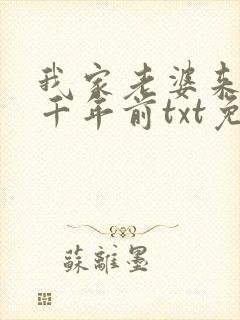 我家老婆来
千年前txt免
蘇離墨